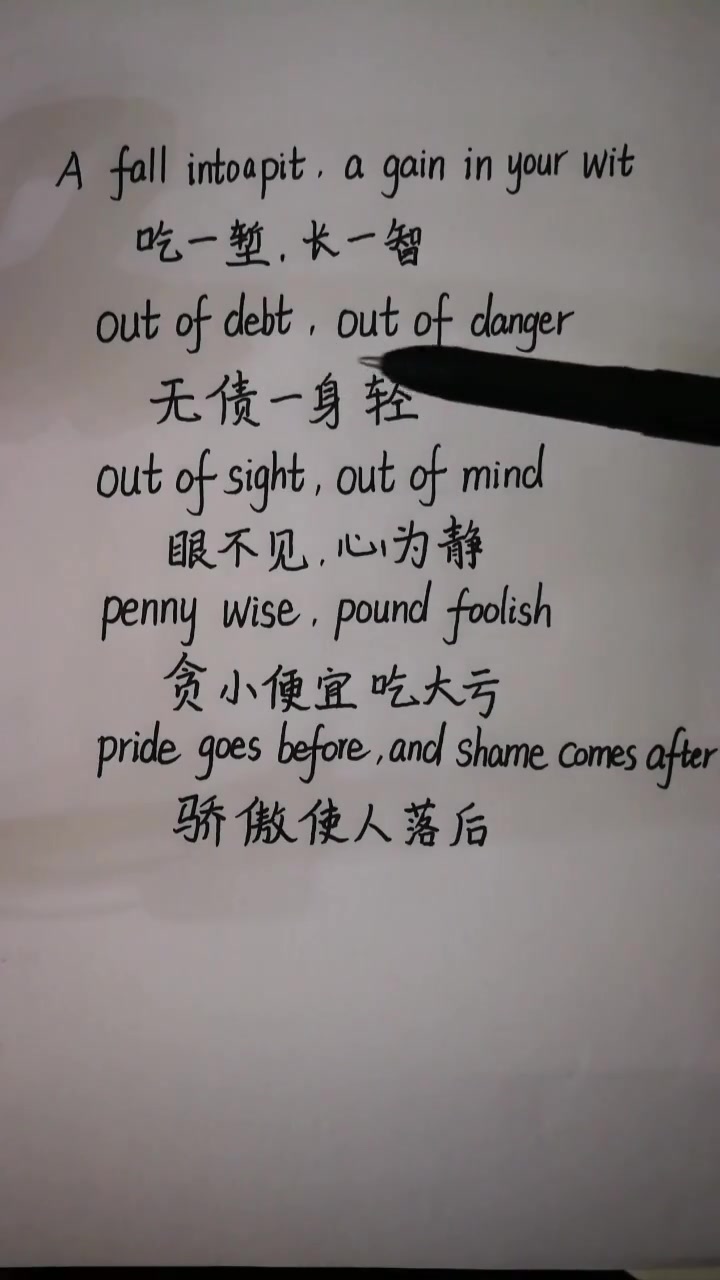 A fall intoapit, a gain in your wit
吃一堑,长一智
out of debt, out of danger
无债一身轻
out of sight, out of mind
眼不见,心为静
penny wise, pound foolish
贪小便宜吃大亏
pride goes before, and shame comes after
骄傲使人落后